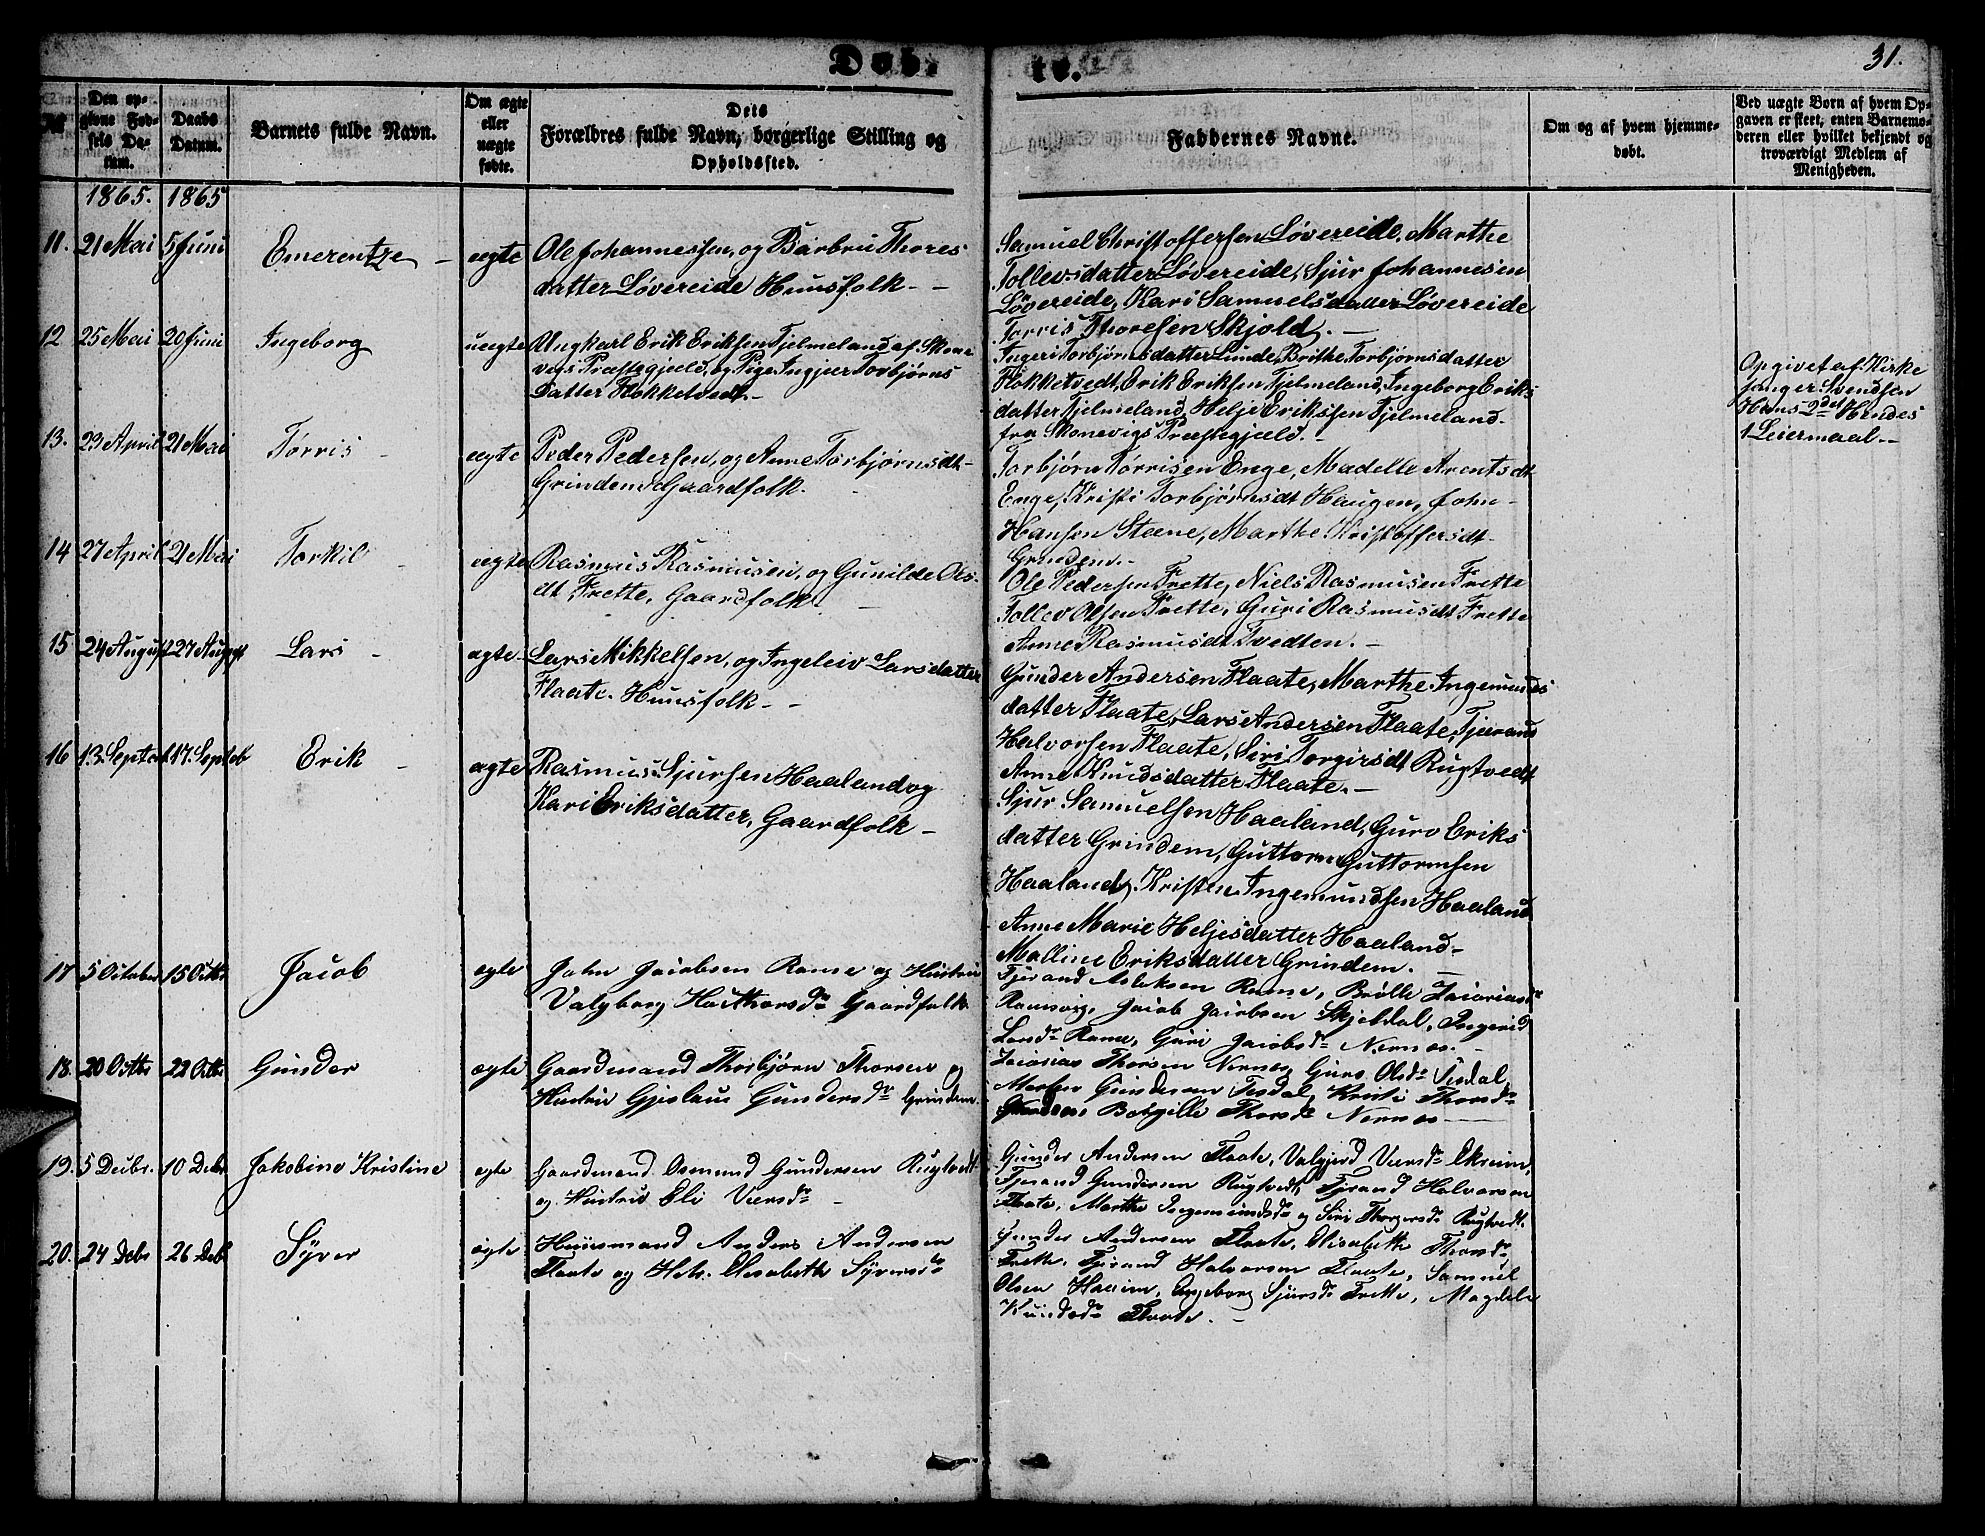 Døb-
te.
31.
№
Den op-
givne Fød-
sels Da-
tum.
Daabs
Datum.
Barnets fulde Navn.
Om ægte
eller
uægte
fødte.
Dets
Forældres fulde Navn, borgerlige Stilling og
Opholdssted.
Faddernes Navne.
Om og af hvem hjemme-
døbt.
Ved uægte Børn af hvem Op-
gaven er skeet, enten Barnemo-
deren eller hvilket bekjendt og
troværdigt Medlem af
Menigheden.
1865. 1865
11. 21 Mai 5 Juni Emerentze - ægte
Ole Johannessen, og Barbru Thores
datter Løvereide Huusfolk - -
Samuel Christoffersen Løvereide, Marthe
Tollevsdatter Løvereide, Sjur Johannesen
Løvereide, Kari Samuelsdatter Løvereide
Torris Thoresen Skjold. -
12 25 Mai 20 Juni Ingeborg uægte
Ungkarl Erik Eriksen Fjelmeland af Skone-
vigs Præstegjæld, og Pige Ingjær Torbjørns
Datter Flokketvedt. -
Ingeri Torbjørnsdatter Lunde, Brithe Torbjørnsdatter
Flokketvedt, Erik Eriksen Fjelmeland, Ingeborg Eriks
datter Fjelmeland, Helje Erikssen Fjelmeland
fra Skonevigs Præstegjæld. -
Opgivet af Kirke
sanger Svendsen
Hans 2det Hendes
1 Leiermaal. -
13. 23 April 21 Mai Tørris - ægte
Peder Pedersen, og Anne Torbjørnsdt-
Grindem Gaardfolk.
Torbjørn Tørrisen Enge, Madelle Arentsdt
Enge, Kristi Torbjørnsdt Haugen, John
Hansen Stene, Marthe Kristoffersdt
Grindem. -
14 27 April 21 Mai Torkil - ægte
Rasmus Rasmusen, og Gunilde Ols-
dt Frette, Gaardfolk. -
Ole Pedersen Frette, Niels Rasmusen Frette
Tollev Olsen Frette, Guri Rasmusdt Frette
Anne Rasmusdt Tvedten. -
15 24 August 27 August Lars - ægte
Lars Mikkelsen, og Ingeleiv Larsdatter
Flaate. Huusfolk - -
Gunder Andersen Flaate, Marthe Ingemunds
datter Flaate, Lars Andersen Flaate, Tjeran
Halvorsen Flaate, Siri Torgirsdt Rugtvedt
Anne Knudsdatter Flaate. -
16 13 Septem 17 Septeb Erik - ægte
Rasmus Sjursen Haaland og
Kari Eriksdatter, Gaardfolk -
Sjur Samuelsen Haaland, Guro Eriks
datter Grindem, Guttorm Guttormsen
Haaland, Kristen Ingemundsen Haaland
Anne Marie Heljesdatter Haaland -
Malline Eriksdatter Grindem. -
17 5 October 15 Octbr Jacob ægte
John Jacobsen Rame og Hustru
Valgborg Hatthorsdr Gaardfolk
Tjerand Aslaksen Rame, Brølle Zacariasdr
Ramsvig, Jacob Jacobsen Skjeldal, Ingerid
Larsdr Rame, Guri Jacobsdr Nernes. -
18. 20 Octbr 22 Octbr Gunder ægte
Gaardmand Thorbjørn Thorsen og
Hustru Gjeslaug Gundersdr Grindem.
Zacarias Thorsen Nernes, Guro Olsdr Tesdal,
Morten Gundersen Tesdal, Kristi Thorsdr
Grindem, Botgille Thorsdr Nernes
19. 5 Decbr. 10 Debr Jakobine Kristine ægte
Gaardmand Osmund Gundersen Rugtvedt
og Hustru Eli Versdr -
Gunder Andersen Flaate, Valgjerd Versdr Ekreim,
Tjerand Gundersen Rugtvedt, Tjerand Halvorsen
Flaate, Marthe Ingemundsdr og Siri Thorgersdr Rugtvedt.
20. 24 Debr 26 Deb Syver ægte
Huusmand Anders Andersen
Flaate og Hstr. Elisabethe Syversdr
Gunder Andersen Flaate, Elisabethe Thorsdr
Frette, Tjerand Halvorsen Flaate, Samuel
Olsen Hareim, Engeborg Sjursdr Frette, Magdele
Knudsdr Flaate. -